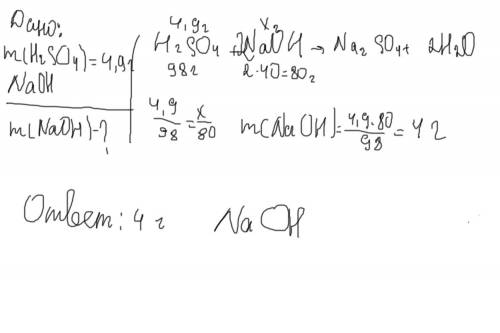 Дано:
m(H2SO4)=4,9г
NaOH
m(NaOH)-?
4,9г xг
H2SO4 + 2NaOH → Na2SO4+ 2H2O
98г 2·40=80г
4,9/98 = x/80 m(NaOH)=4,9·80/98=4г
Ответ: 4 г NaOH